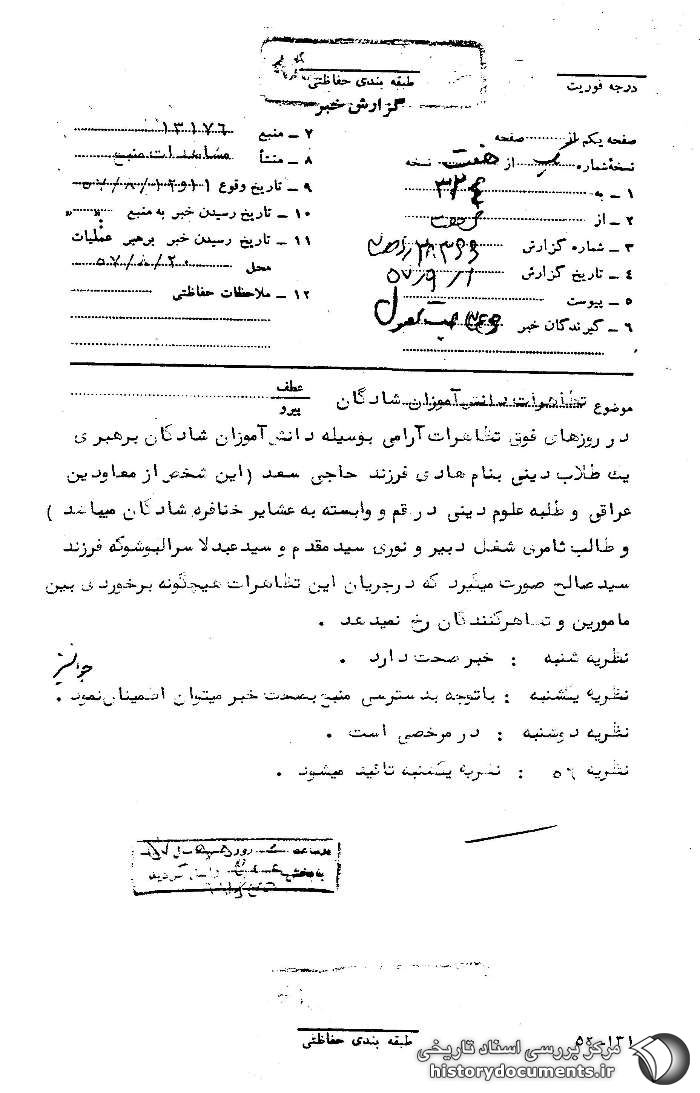 طبقه بندی حفاظتی
درجه فوریت
گزارش خبر
صفحه یکم از صفحه
نسخهٔ شماره از هفت نسخه
۱ – به ۳۲۴
۲ – از
۳ – شماره گزارش
۴ – تاریخ گزارش ۵۷/۹/۱
۵ – پیوست
۶ – گیرندگان خبر
۷ – منبع ۱۳۱۷۶
۸ – منشأ مشاهدات منبع
۹ – تاریخ وقوع ۱۱و۵۷/۸/۱۲
۱۰ – تاریخ رسیدن خبر به منبع " "
۱۱ – تاریخ رسیدن خبر برهبر عملیات
محل ۵۷/۸/۲۰
۱۲ – ملاحظات حفاظتی
موضوع تظاهرات دانش‌آموزان شادگان
عطف
پیرو
در روزهای فوق تظاهرات آرامی بوسیله دانش‌آموزان شادگان برهبری
یک طلاب دینی بنام هادی فرزند حاجی سعد (این شخص از معاودین
عراقی و طلبه علوم دینی در قم و وابسته به عشایر خنافره شادگان میباشد )
و طالب ثامری شغل دبیر و نوری سید مقدم و سید عبدلا سرالبوشوکه فرزند
سید صالح صورت میگیرد که در جریان این تظاهرات هیچگونه برخوردی بین
مامورین و تظاهرکنندگان رخ نمیدهد .
نظریه شنبه : خبر صحت دارد .
نظریه یکشنبه : باتوجه بدسترسی منبع بصحت خبر میتوان اطمینان نمود .
نظریه دوشنبه : در مرخصی است .
نظریه ۵۶ : نظریه یکشنبه تائید میشود .
طبقه بندی حفاظتی
۵۲–۱۳۱
مرکز بررسی اسناد تاریخی
historydocuments.ir